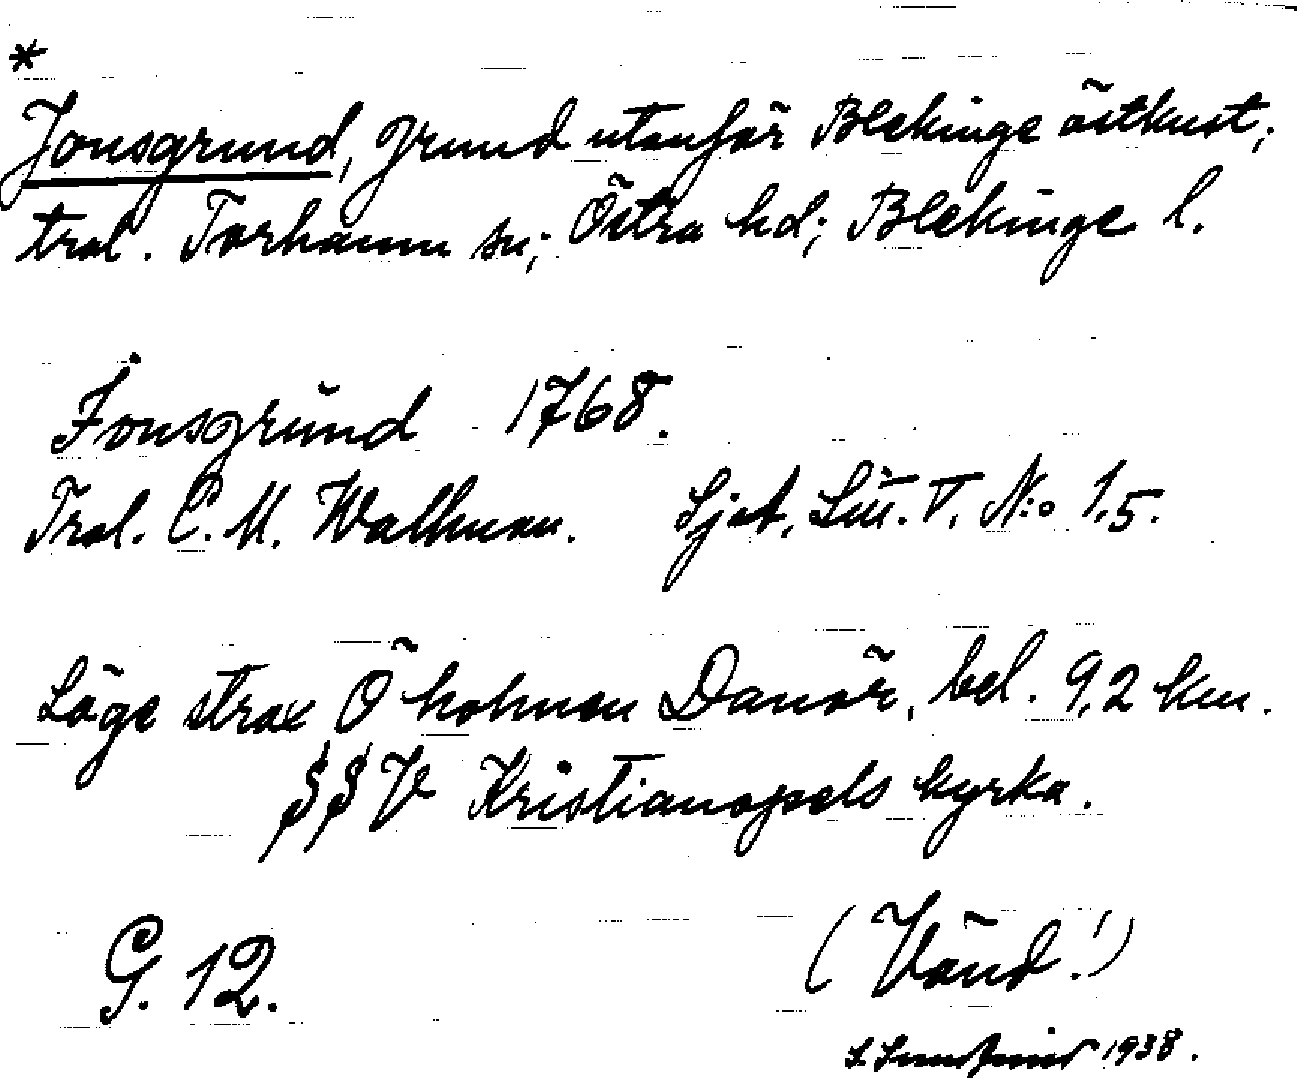 *
Jonsgrund, grund utanför Blekinge östkust;
tral. Torhamn sn; Östra hd; Blekinge l.
Jonsgrund 1768.
Tral. C. M. Wallman. Sjöt. Litt. V. N:o 1,5.
Läge strax Ö holmen Danör, bel. 9,2 km.
SSV Kristianopels kyrka.
G. 12.
(Vänd!)
1938.